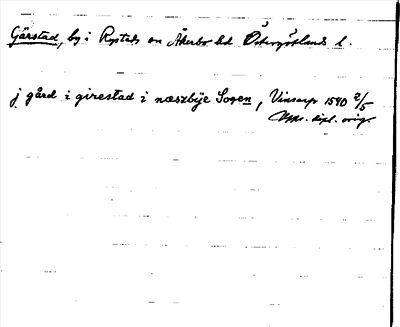 Gärstad, by i Rystads sn Åkerbo hd Östergötlands l.
j gård i girestad i næszbÿe Sogen, Vinsarp 1540 2/5
dipl. orig.